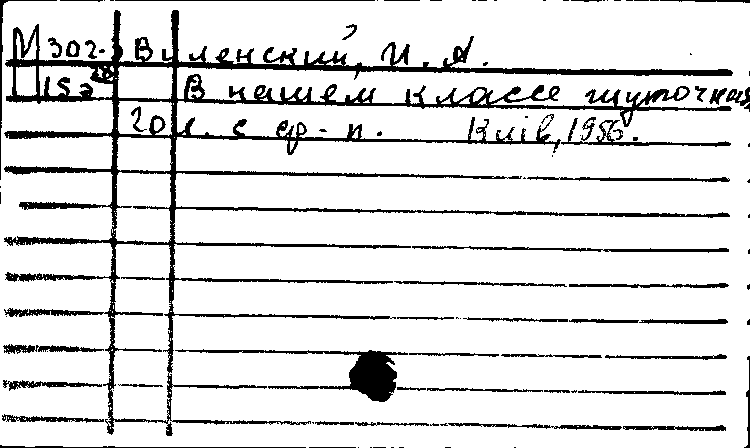 М 302- Виленский, И. А.
15э В нашем классе шуточная
20 л. с ср-п. Київ, 1956.